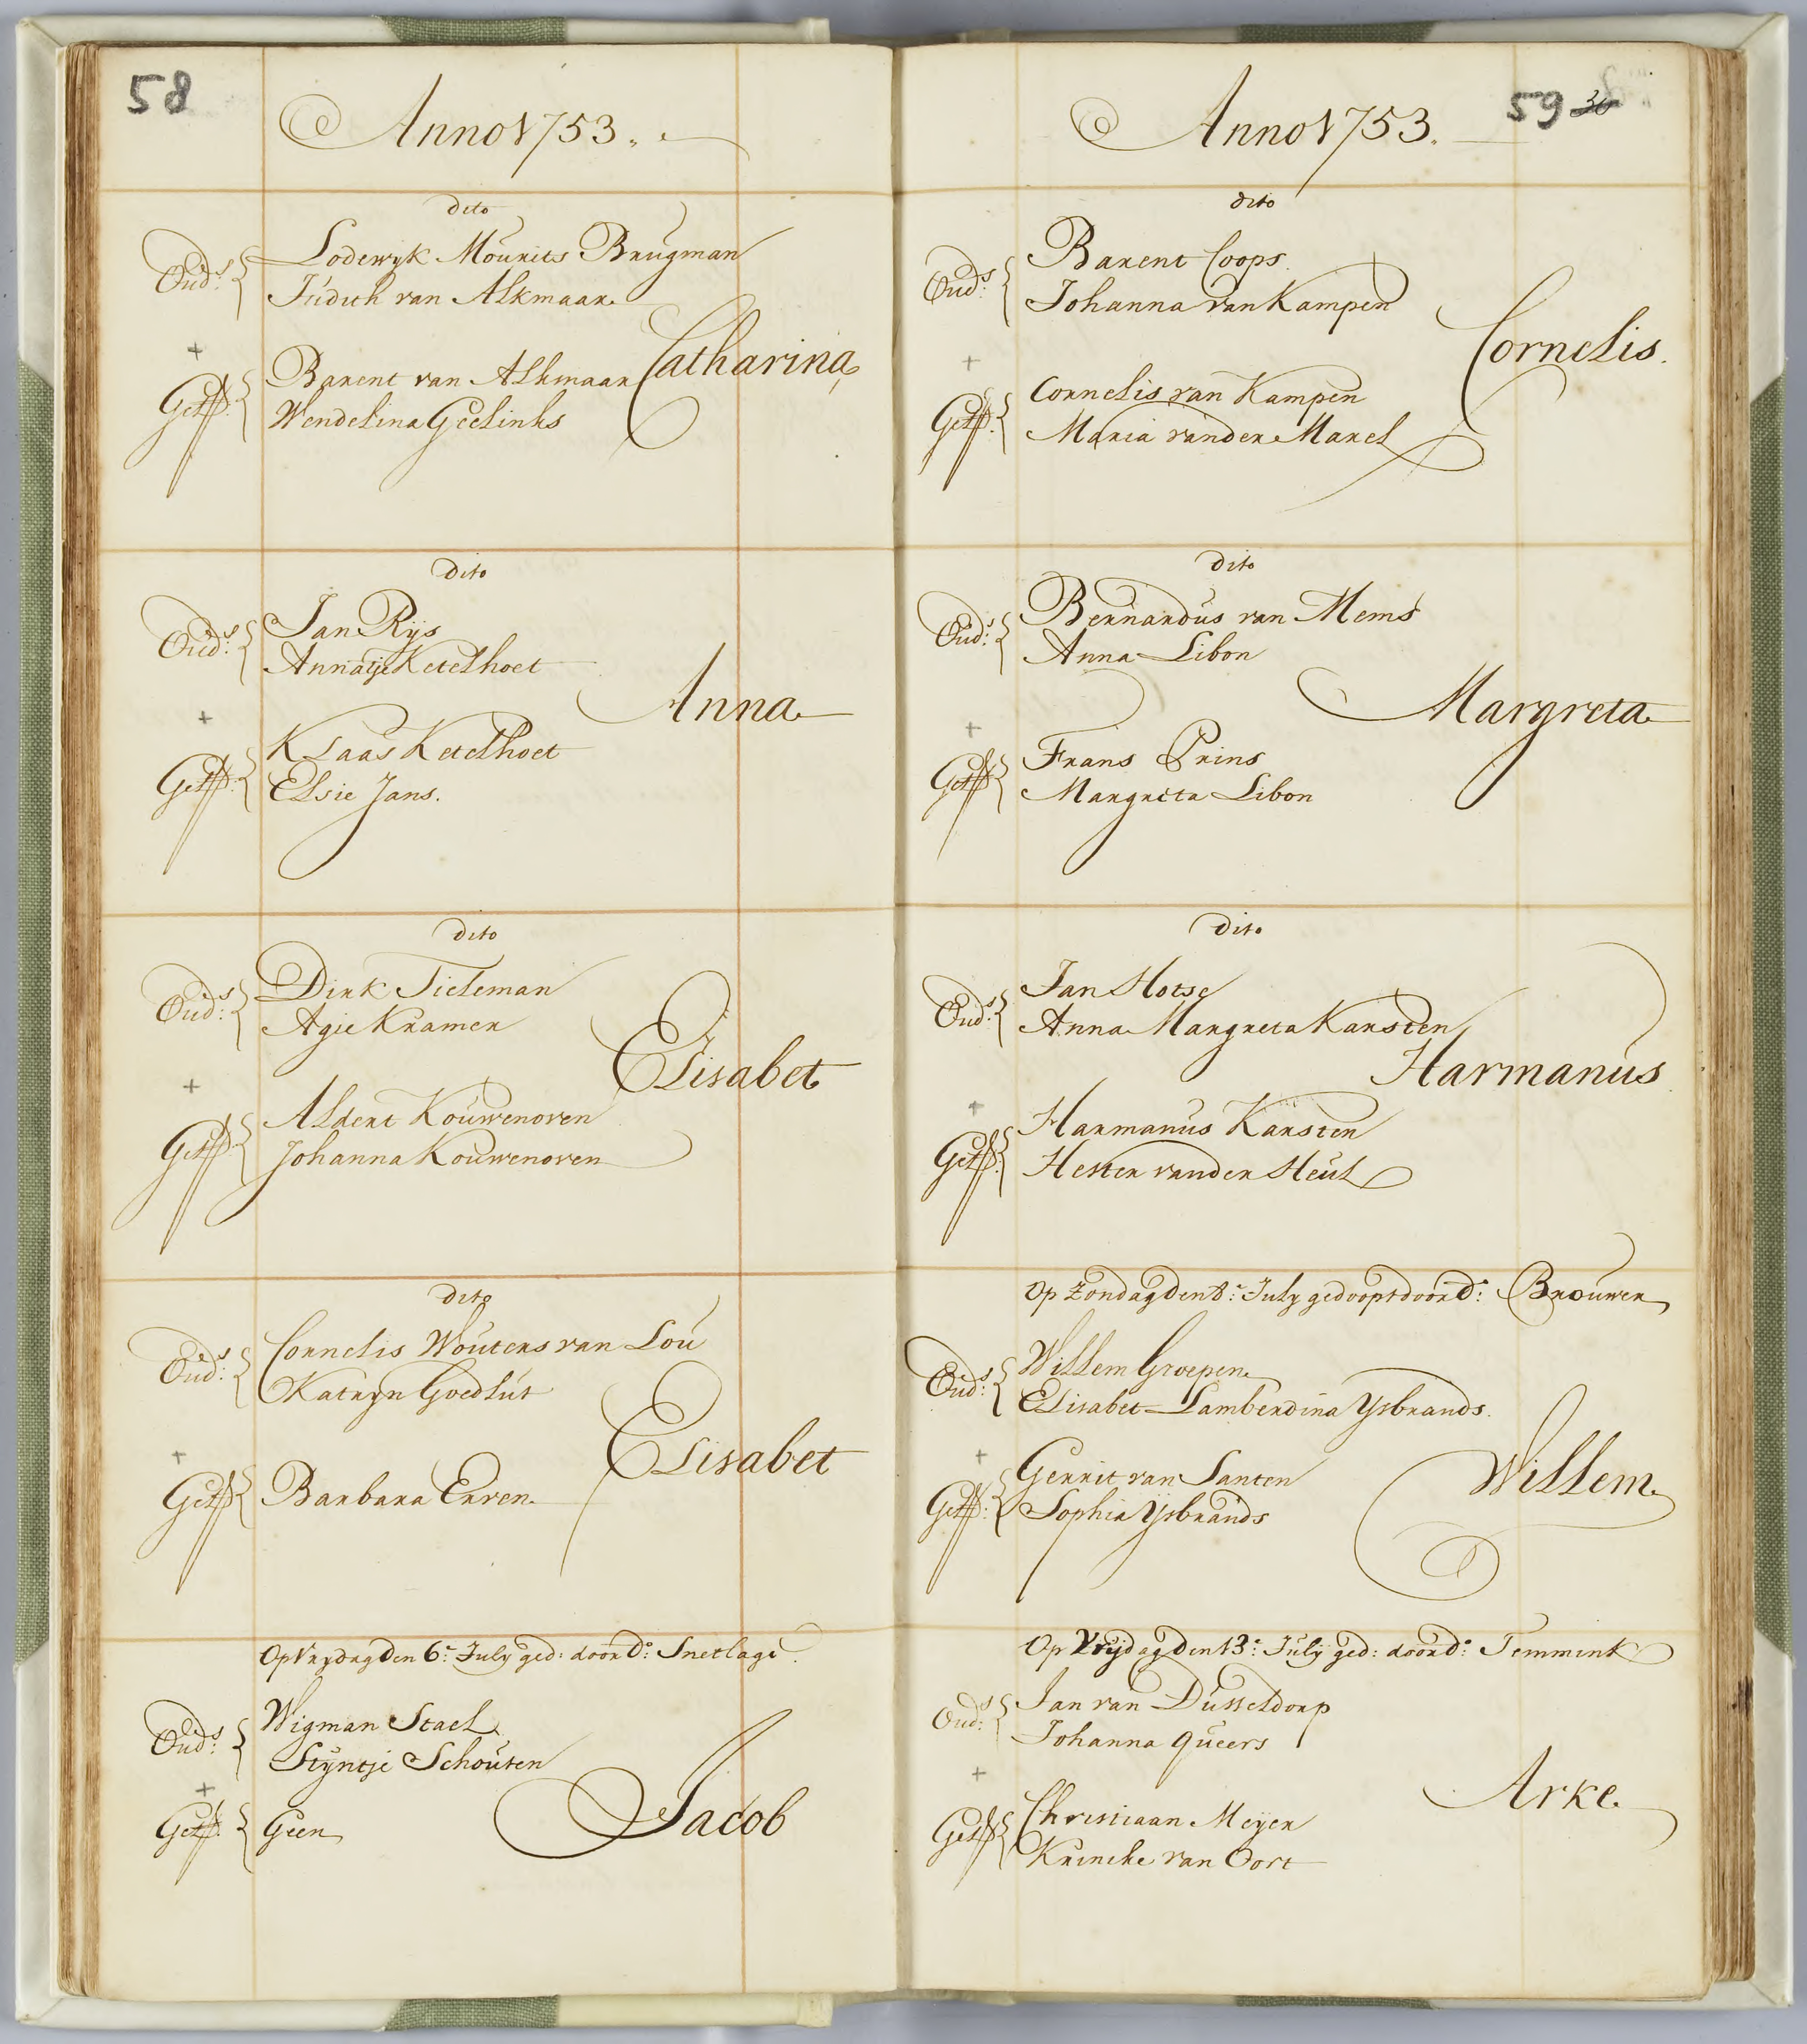 58
Anno 1753.
dito
Oud.s
Lodewyk Mourits Brugman
Judith van Alkmaar
Catharina
+
Get.
Barent van Alkmaar
Wendelina Geelinks
dito
Oud.s
Jan Rijs
Annatje Ketelhoet
Anna
+
Get.
Klaas Ketelhoet
Elsie Jans.
dito
Oud.s
Dirk Tieleman
Agie Kramer
Elisabet
+
Get.
Aldert Kouwenoven
Johanna Kouwenoven
dito
Oud.s
Cornelis Wouters van Lou
Katryn Goedlut
Elisabet
+
Get.
Barbara Erven
Op Vrydag den 6.e July ged: door D.o Snetlage.
Oud.s
Wigman Stael
Styntje Schouten
Jacob
+
Get.
Geen
59 30
Anno 1753.
dito
Oud.s
Barent Coops
Johanna van Kampen
Cornelis.
+
Get.
Cornelis van Kampen
Maria vander Marel
dito
Oud.s
Bernardus van Mems
Anna Libon
Margreta
+
Get.
Frans Prins
Margreta Libon
dito
Oud.s
Jan Hotse
Anna Margreta Karsten
Harmanus
+
Get.
Harmanus Karsten
Hester vander Heul
Op Zondag den 8.e July gedoopt door D.o Brouwer
Oud.s
Willem Groepen
Elisabet Lamberdina Ysbrands.
Willem
+
Get.
Gerrit van Santen
Sophia Ysbrands
Op Vrijdag den 13.e July ged: door D.o Temmink
Oud.s
Jan van Dusseldorp
Johanna Queers
Arke
+
Get.
Christiaan Meyer
Krincke van Oort